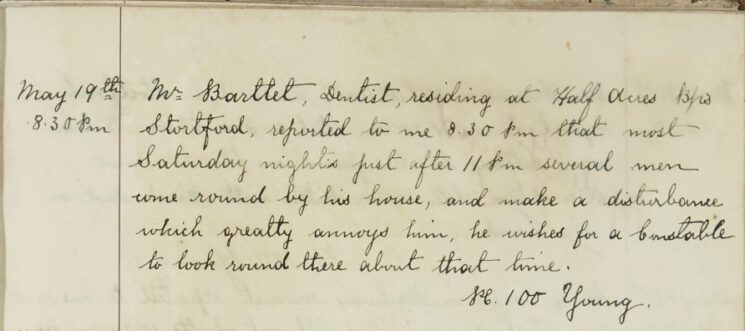 May 19th Mr Barttet, Dentist, residing at Half Acres B/ps
8.30 Pm Stortford, reported to me 8.30 Pm that most
Saturday nights just after 11 Pm several men
come round by his house, and make a disturbance
which greatly annoys him, he wishes for a Constable
to look round there about that time.
P.C. 100 Young.